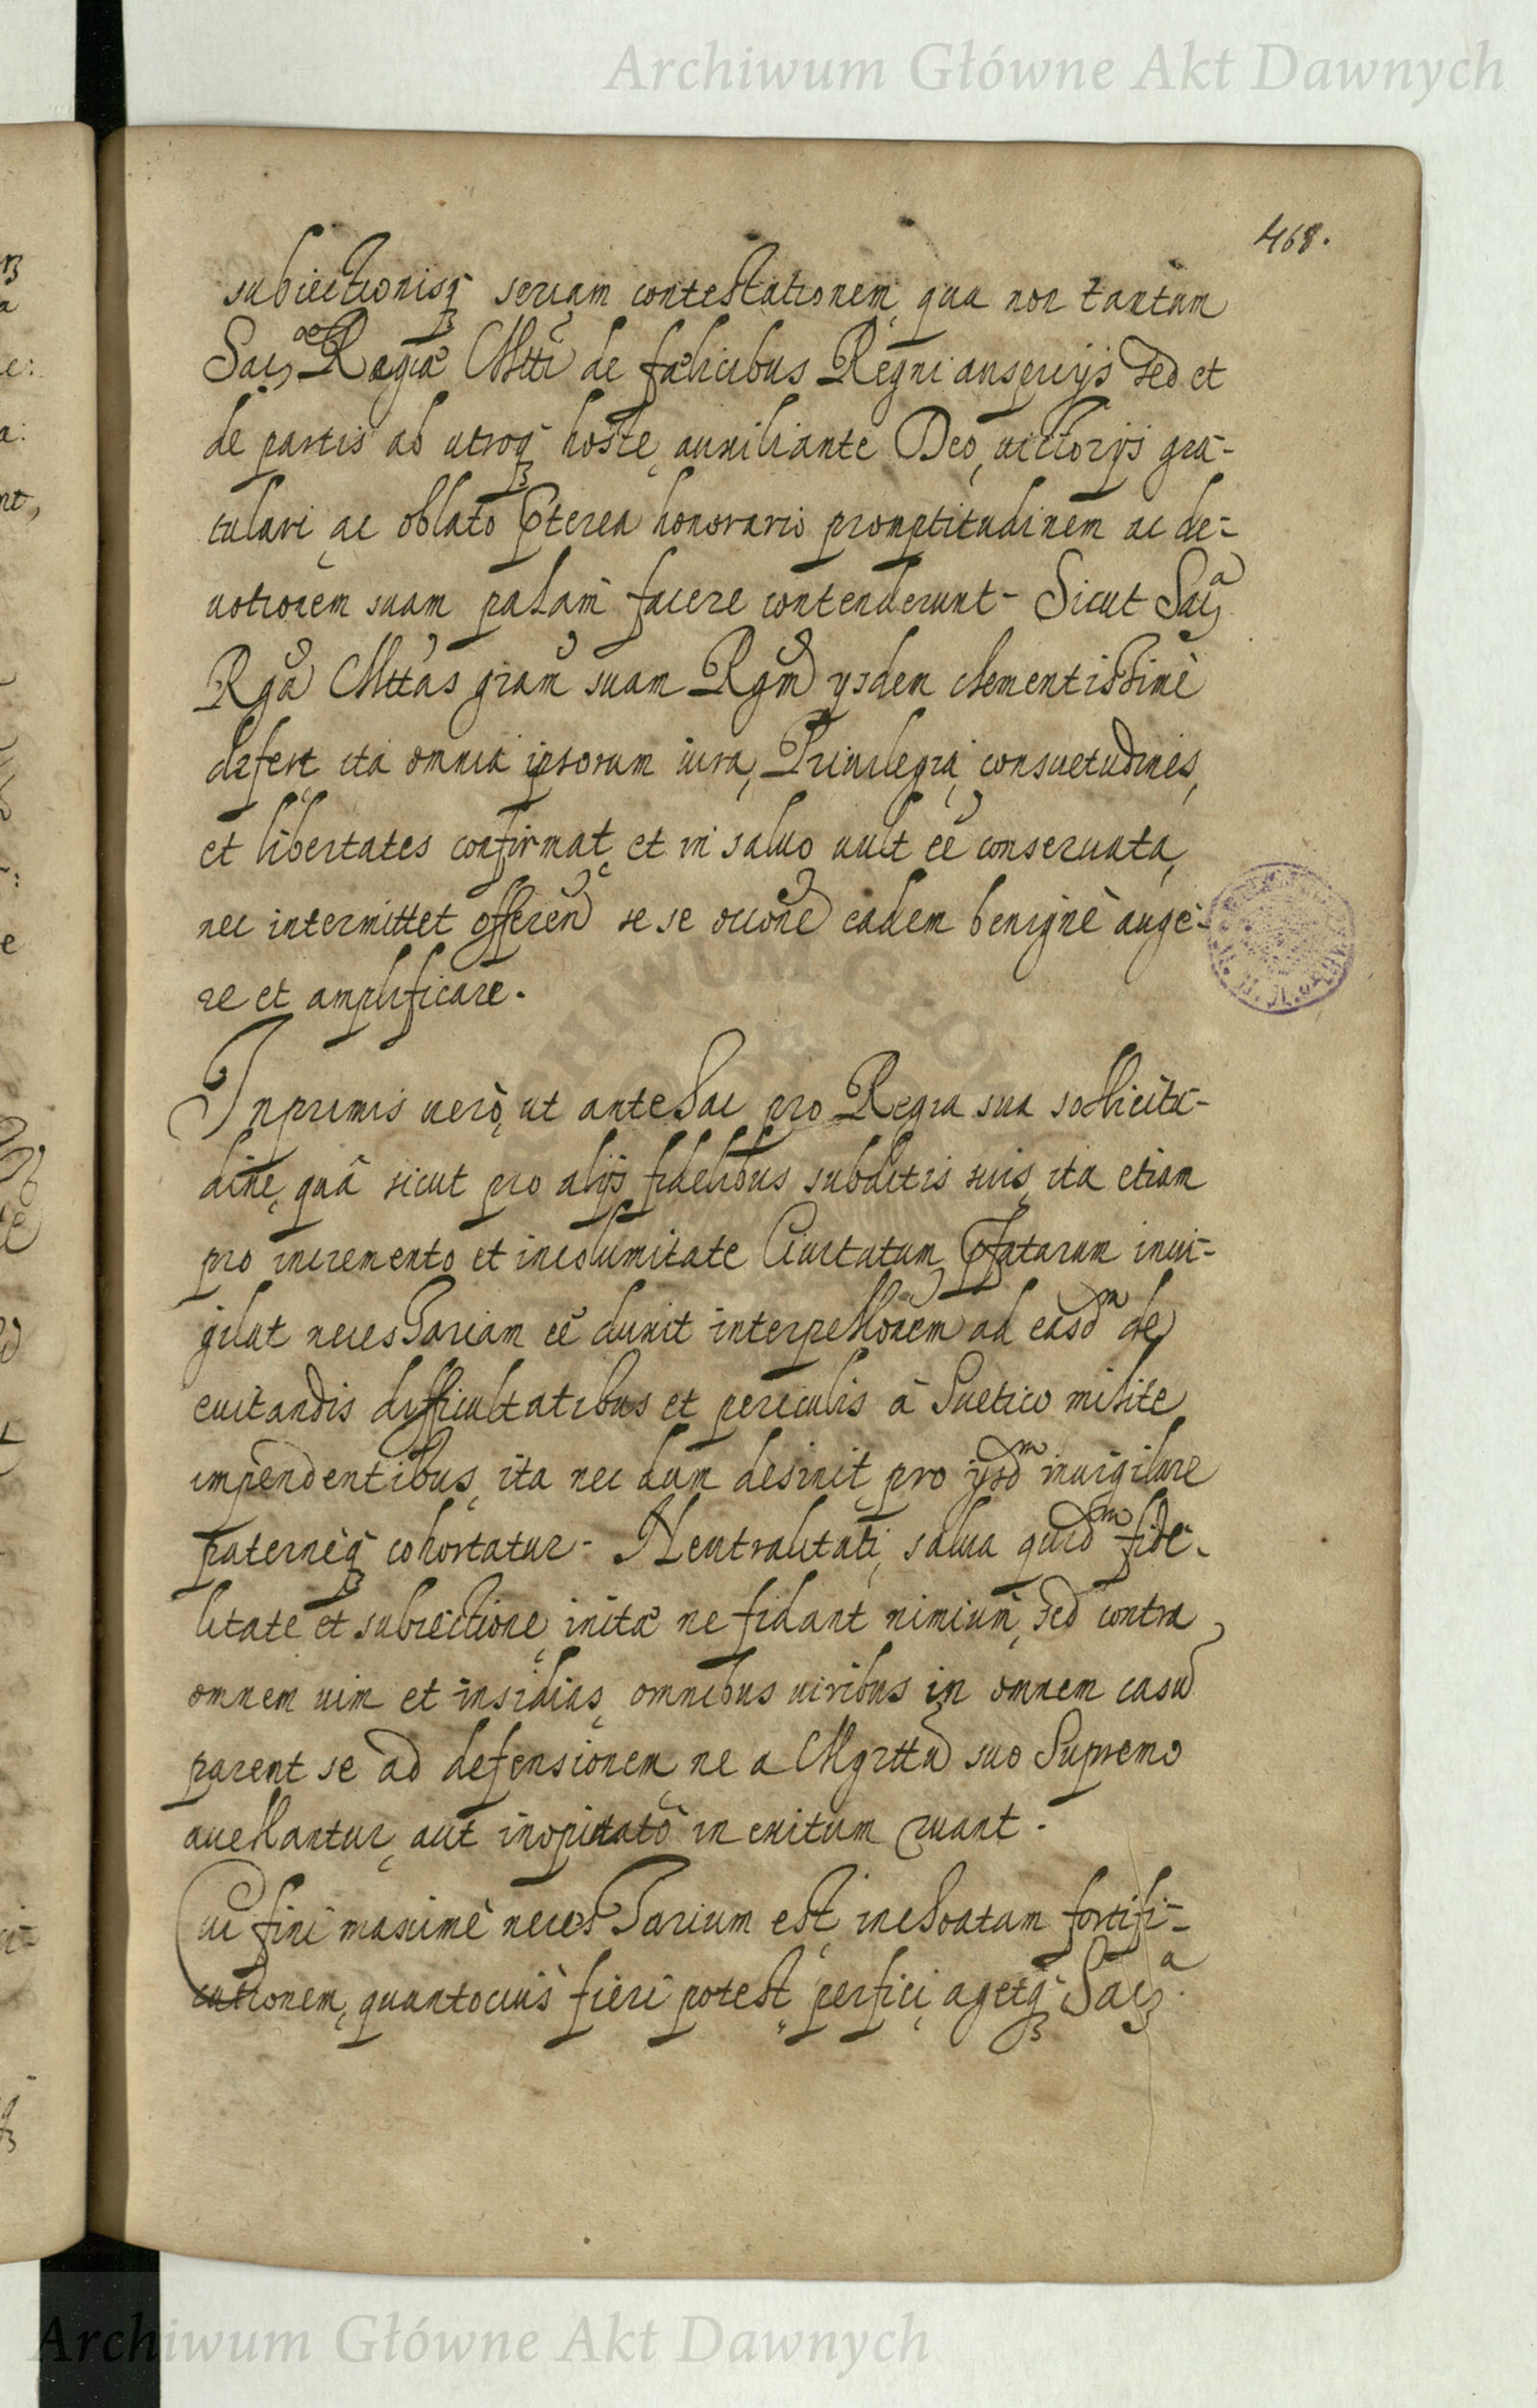 Archiwum Główne Akt Dawnych
468.
subiectionisq̃ seriam contestationem, qua non tantum
Sac, ae Regiæ Mtti de fælicibus Regni auspicijs sed et
de partis ab utroq̃ hoste, auxiliante Deo, uictorijs gra-
tulari, ac oblato p̃terea honorario promptitudinem ac de-
uotionem suam palam facere contenderunt- Sicut Sac, a
Rga Mttas gram suam Rgm ysdem clementissimè
defert ita omnia ipsorum iura, Priuilegia, consuetudines,
et libertates confirmat, et in saluo uult eê conseruata,
nec intermittet offeren se se occone eadem benignè auge-
re et amplificare.
Inprimis uerò, ut antehac pro Regia sua sollicitu-
dine, quâ sicut pro alijs fidelibus subditis suis, ita etiam
pro incremento et incolumitate Ciuitatum p̃fatarum inui-
gilat necessariam eê duxit interpellonem ad easdm de
euitandis difficultatibus et periculis à Suetico milite
impendentibus, ita nec dum desinit, pro ijsdm inuigilare
paternèq̃ cohortatur- Neutralitati, salua quidm fide-
litate et subiectione, initæ ne fidant nimium, sed contra
omnem uim et insidias, omnibus uiribus in omnem casũ
parent se ad defensionem, ne a Mgrttũ suo Supremo
auellantur, aut inopinatò in exitium ruant.
Cui fini maximè necessarium est, inchoatam fortifi-
cationem, quantocius fieri potest, perfici, agetq̃ Sac, a
Archiwum Główne Akt Dawnych